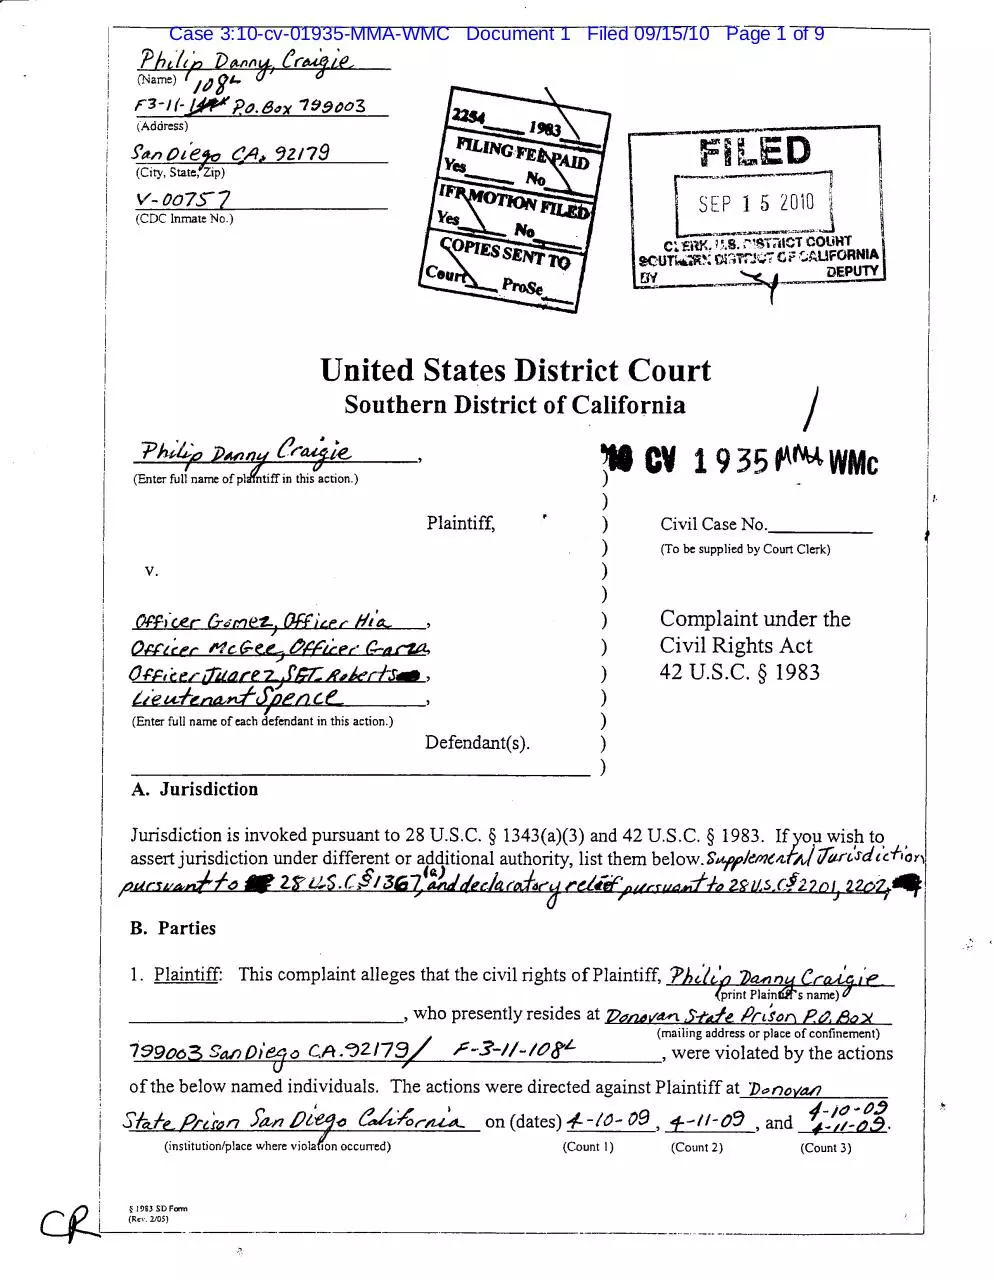 Case 3:10-cv-01935-MMA-WMC Document 1 Filed 09/15/10 Page 1 of 9
Philip Danny, Craigie
(Name)
108L
F3-11- P.O. Box 799003
(Address)
San Diego CA, 92179
(City, State, Zip)
V-00757
(CDC Inmate No.)
2254 1983
FILING FEE PAID
Yes No
IFP MOTION FILED
Yes No
COPIES SENT TO
Court ProSe
FILED
SEP 15 2010
CLERK, U.S. DISTRICT COURT
SOUTHERN DISTRICT OF CALIFORNIA
BY DEPUTY
United States District Court
Southern District of California
Philip Danny Craigie,
(Enter full name of plaintiff in this action.)
Plaintiff,
v.
Officer Gomez, Officer Hia,
Officer McGee, Officer Garza,
Officer Juarez, SGT. Roberts,
Lieutenant Spence,
(Enter full name of each defendant in this action.)
Defendant(s).
)
)
)
)
)
)
)
)
)
)
)
)
'10 CV 1935 MMA WMc
Civil Case No.
(To be supplied by Court Clerk)
Complaint under the
Civil Rights Act
42 U.S.C. § 1983
A. Jurisdiction
Jurisdiction is invoked pursuant to 28 U.S.C. § 1343(a)(3) and 42 U.S.C. § 1983. If you wish to
assert jurisdiction under different or additional authority, list them below. Supplemental Jurisdiction
pursuant to 28 U.S.C § 1367(a) and declaratory relief pursuant to 28 U.S.C § 2201, 2202,
B. Parties
1. Plaintiff: This complaint alleges that the civil rights of Plaintiff, Philip Danny Craigie
(print Plaintiff's name)
, who presently resides at Donovan State Prison P.O. Box
(mailing address or place of confinement)
799003 San Diego CA. 92179/ F-3-11-108L, were violated by the actions
of the below named individuals. The actions were directed against Plaintiff at Donovan
State Prison San Diego California on (dates) 4-10-09, 4-11-09, and 4-10-09 4-11-09.
(institution/place where violation occurred) (Count 1) (Count 2) (Count 3)
§ 1983 SD Form
(Rev. 2/05)
CR